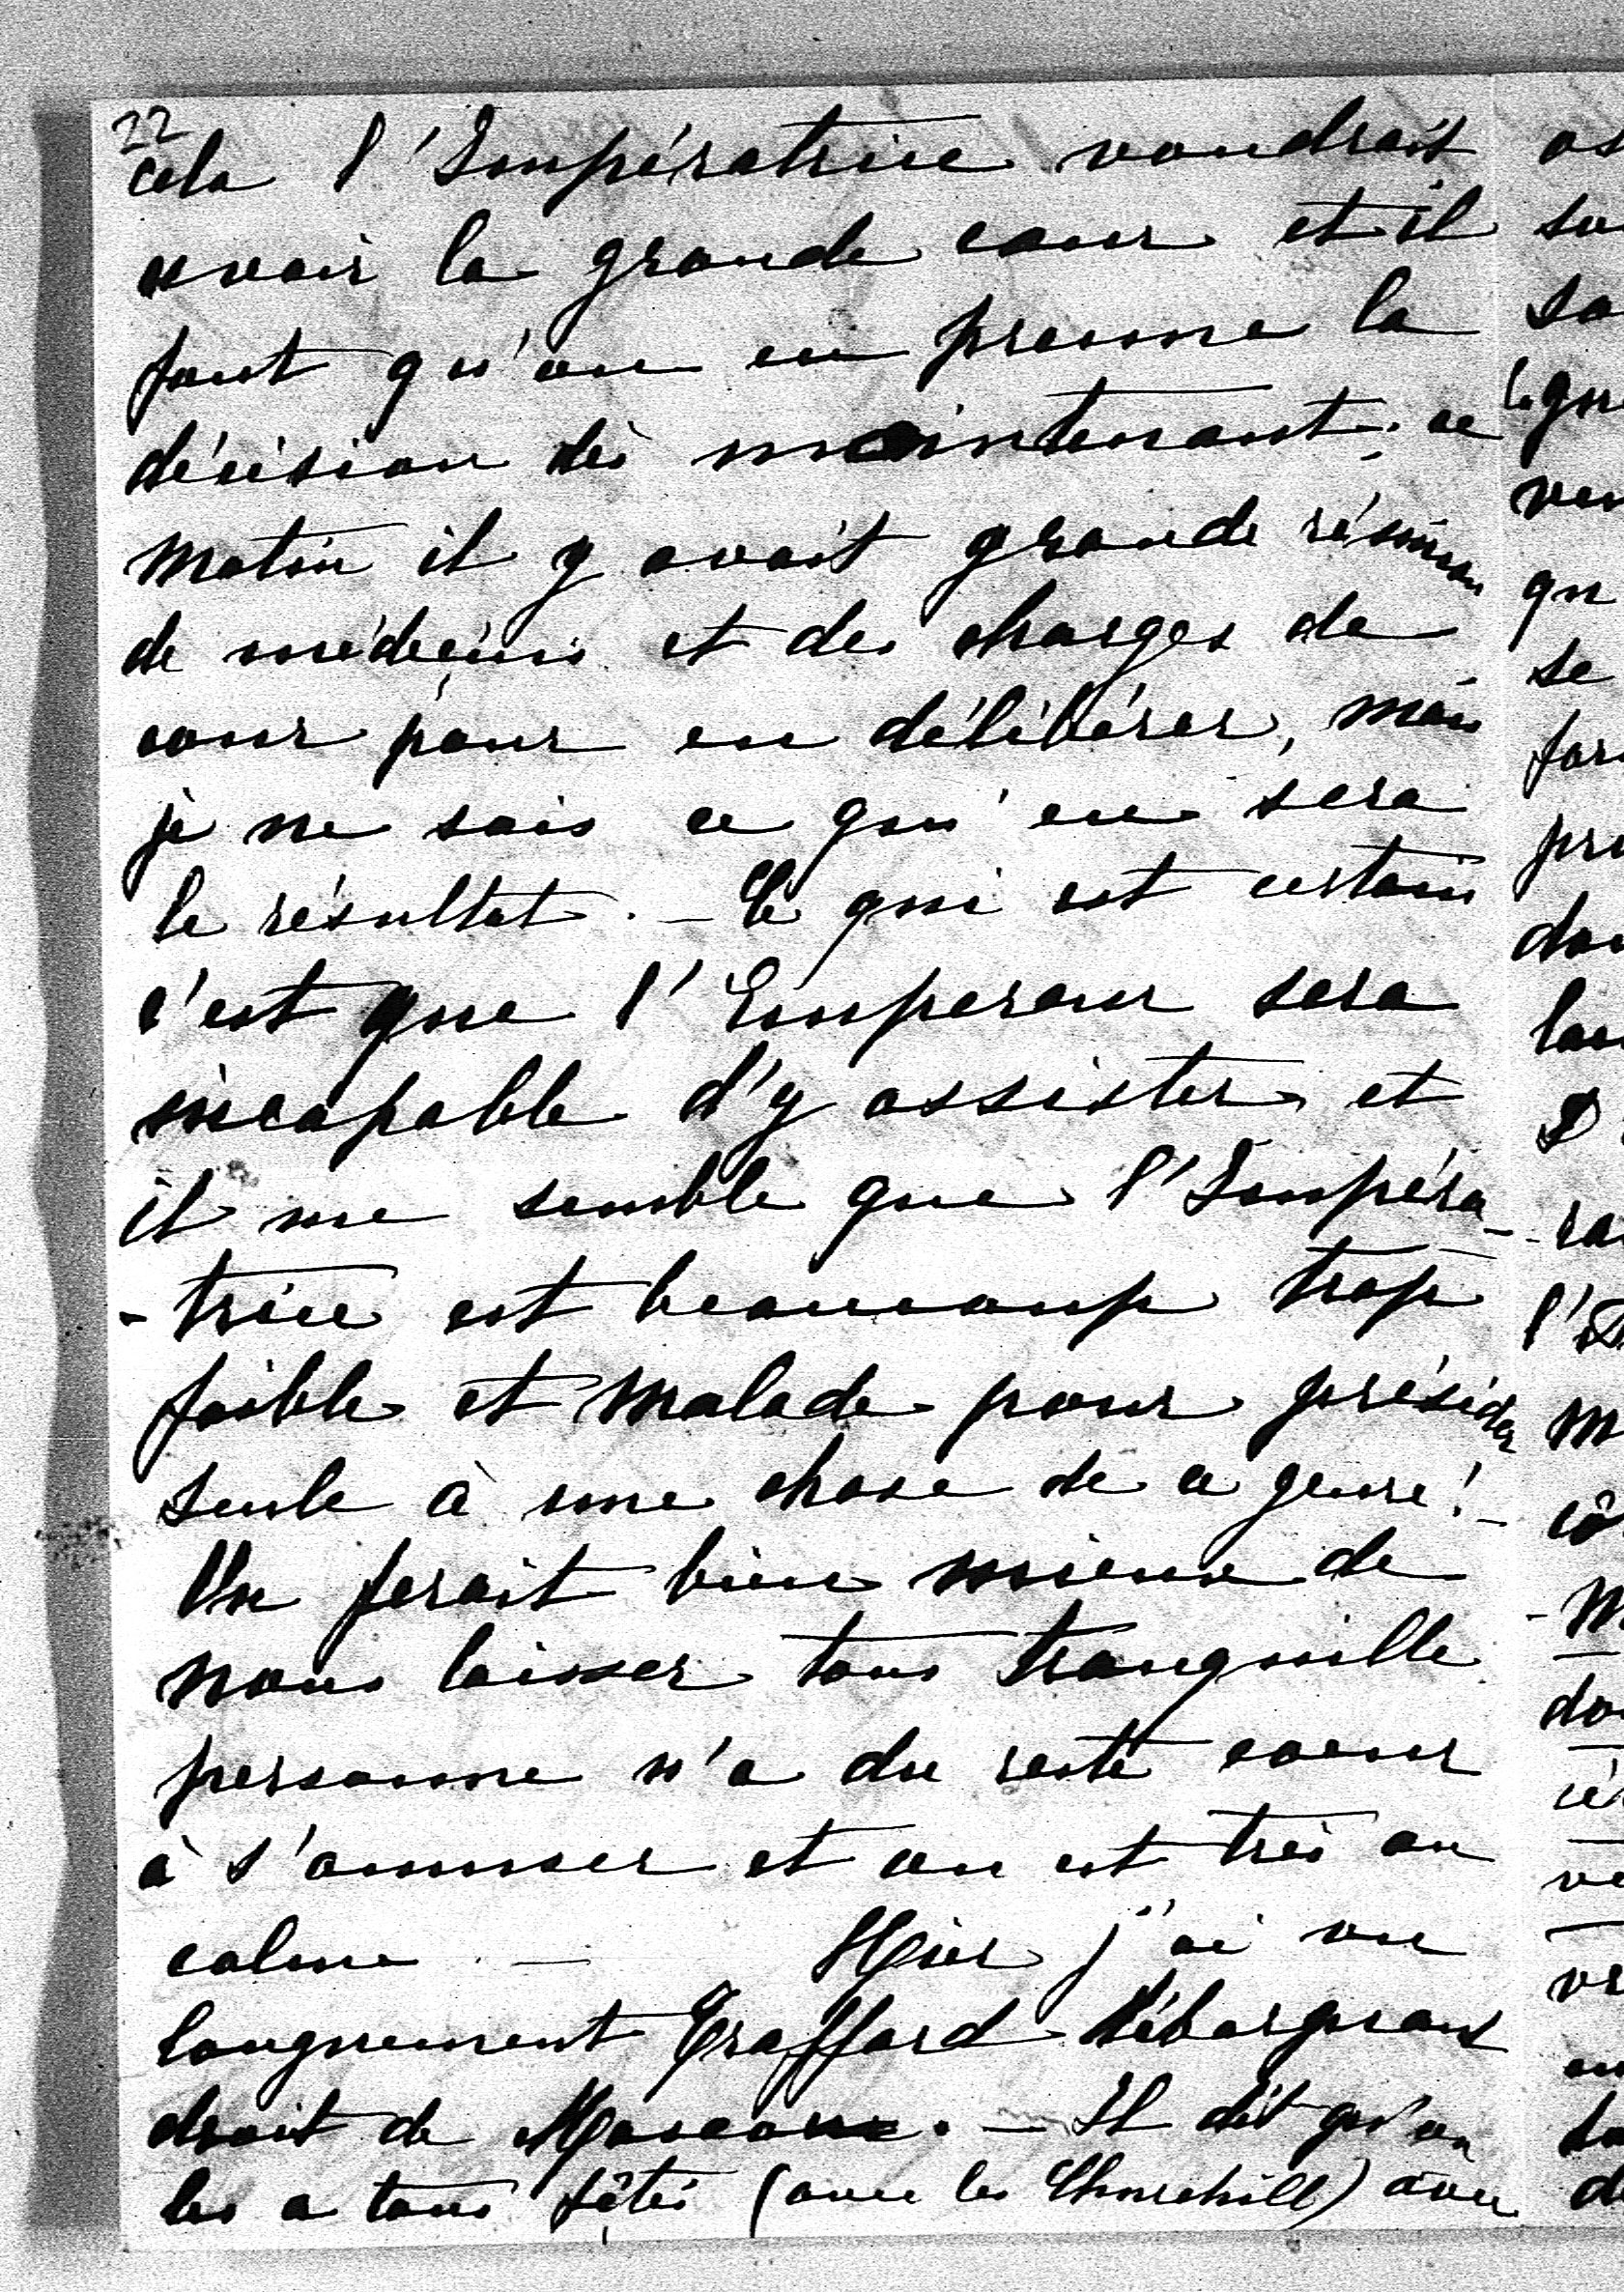 22
cela l'Impératrice voudrait
avoir la grande cour et il
faut qu'on en prenne la
décision dès maintenant; ce
matin il y avait grande réunion
de médecins et des charges de
cour pour en délibérer, mais
je ne sais ce qu'en sera
le résultat. — Ce qui est certain
c'est que l'Empereur sera
incapable d'y assister et
il me semble que l'Impéra-
-trice est beaucoup trop
faible et malade pour présider
seule à une chose de ce genre! —
On ferait bien mieux de
nous laisser tous tranquille
personne n'a du reste coeur
à s'amuser et on est très au
calme. — Hier j'ai vu
longuement Trafford débarquant
droit de Moscou. — Il dit qu'on
les a tous fêtés (avec les Churchill) avec